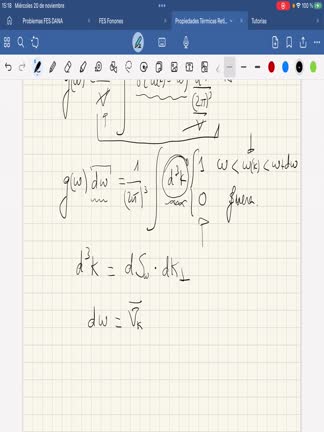 15:18 Miércoles 20 de noviembre
100 %
Problemas FES DANA
FES Fonones
Propiedades Térmicas Retí...
Tutorías
g(ω)
V
(2π)³
V
g(ω) dω = 1/(2π)³ ∫ d³k { 1 ω < ω(k) < ω+dω
0 fuera
d³k = dSω · dk⊥
dω = ∇k